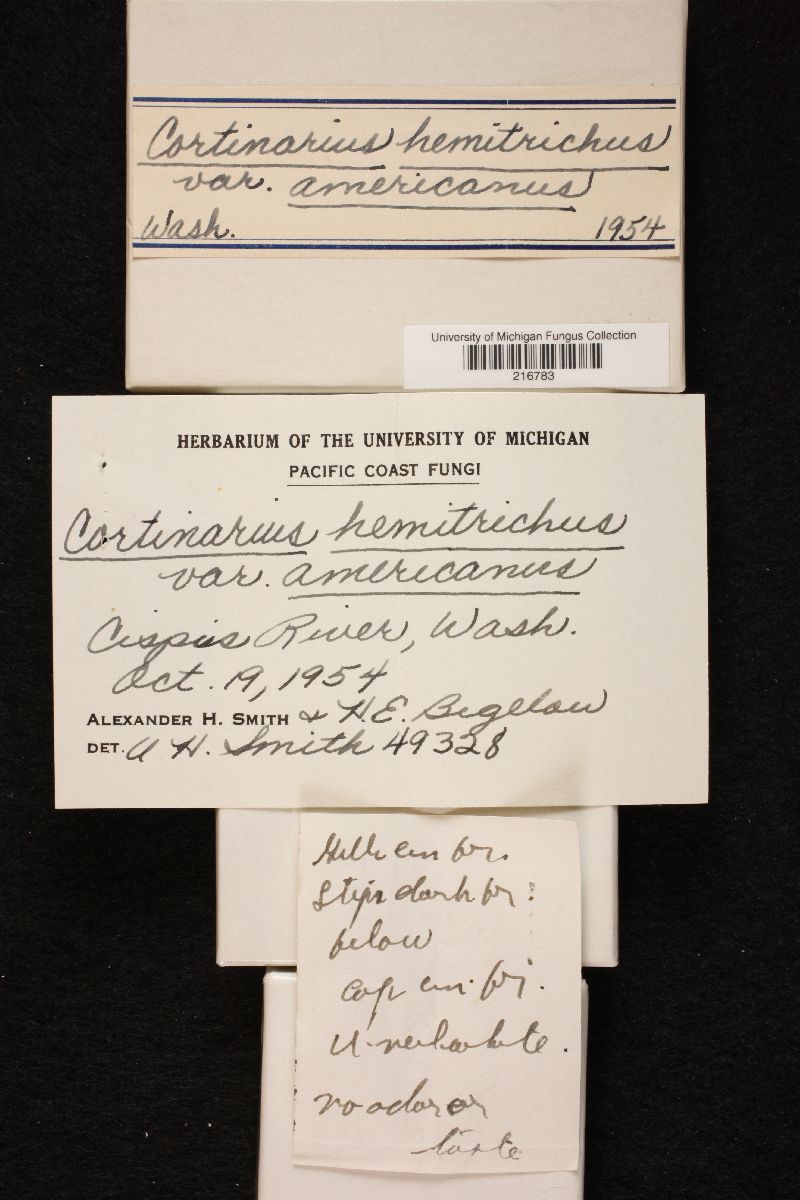 Cortinarius hemitrichus
var. americanus
Wash. 1954
University of Michigan Fungus Collection
216783
HERBARIUM OF THE UNIVERSITY OF MICHIGAN
PACIFIC COAST FUNGI
Cortinarius hemitrichus
var. americanus
Cispus River, Wash.
Oct. 19, 1954
ALEXANDER H. SMITH & H.E. Bigelow
DET. A H. Smith 49328
Gills cin br.
Stipe dark br.
below
Cap cin. br.
U. veil white.
no odor or
taste